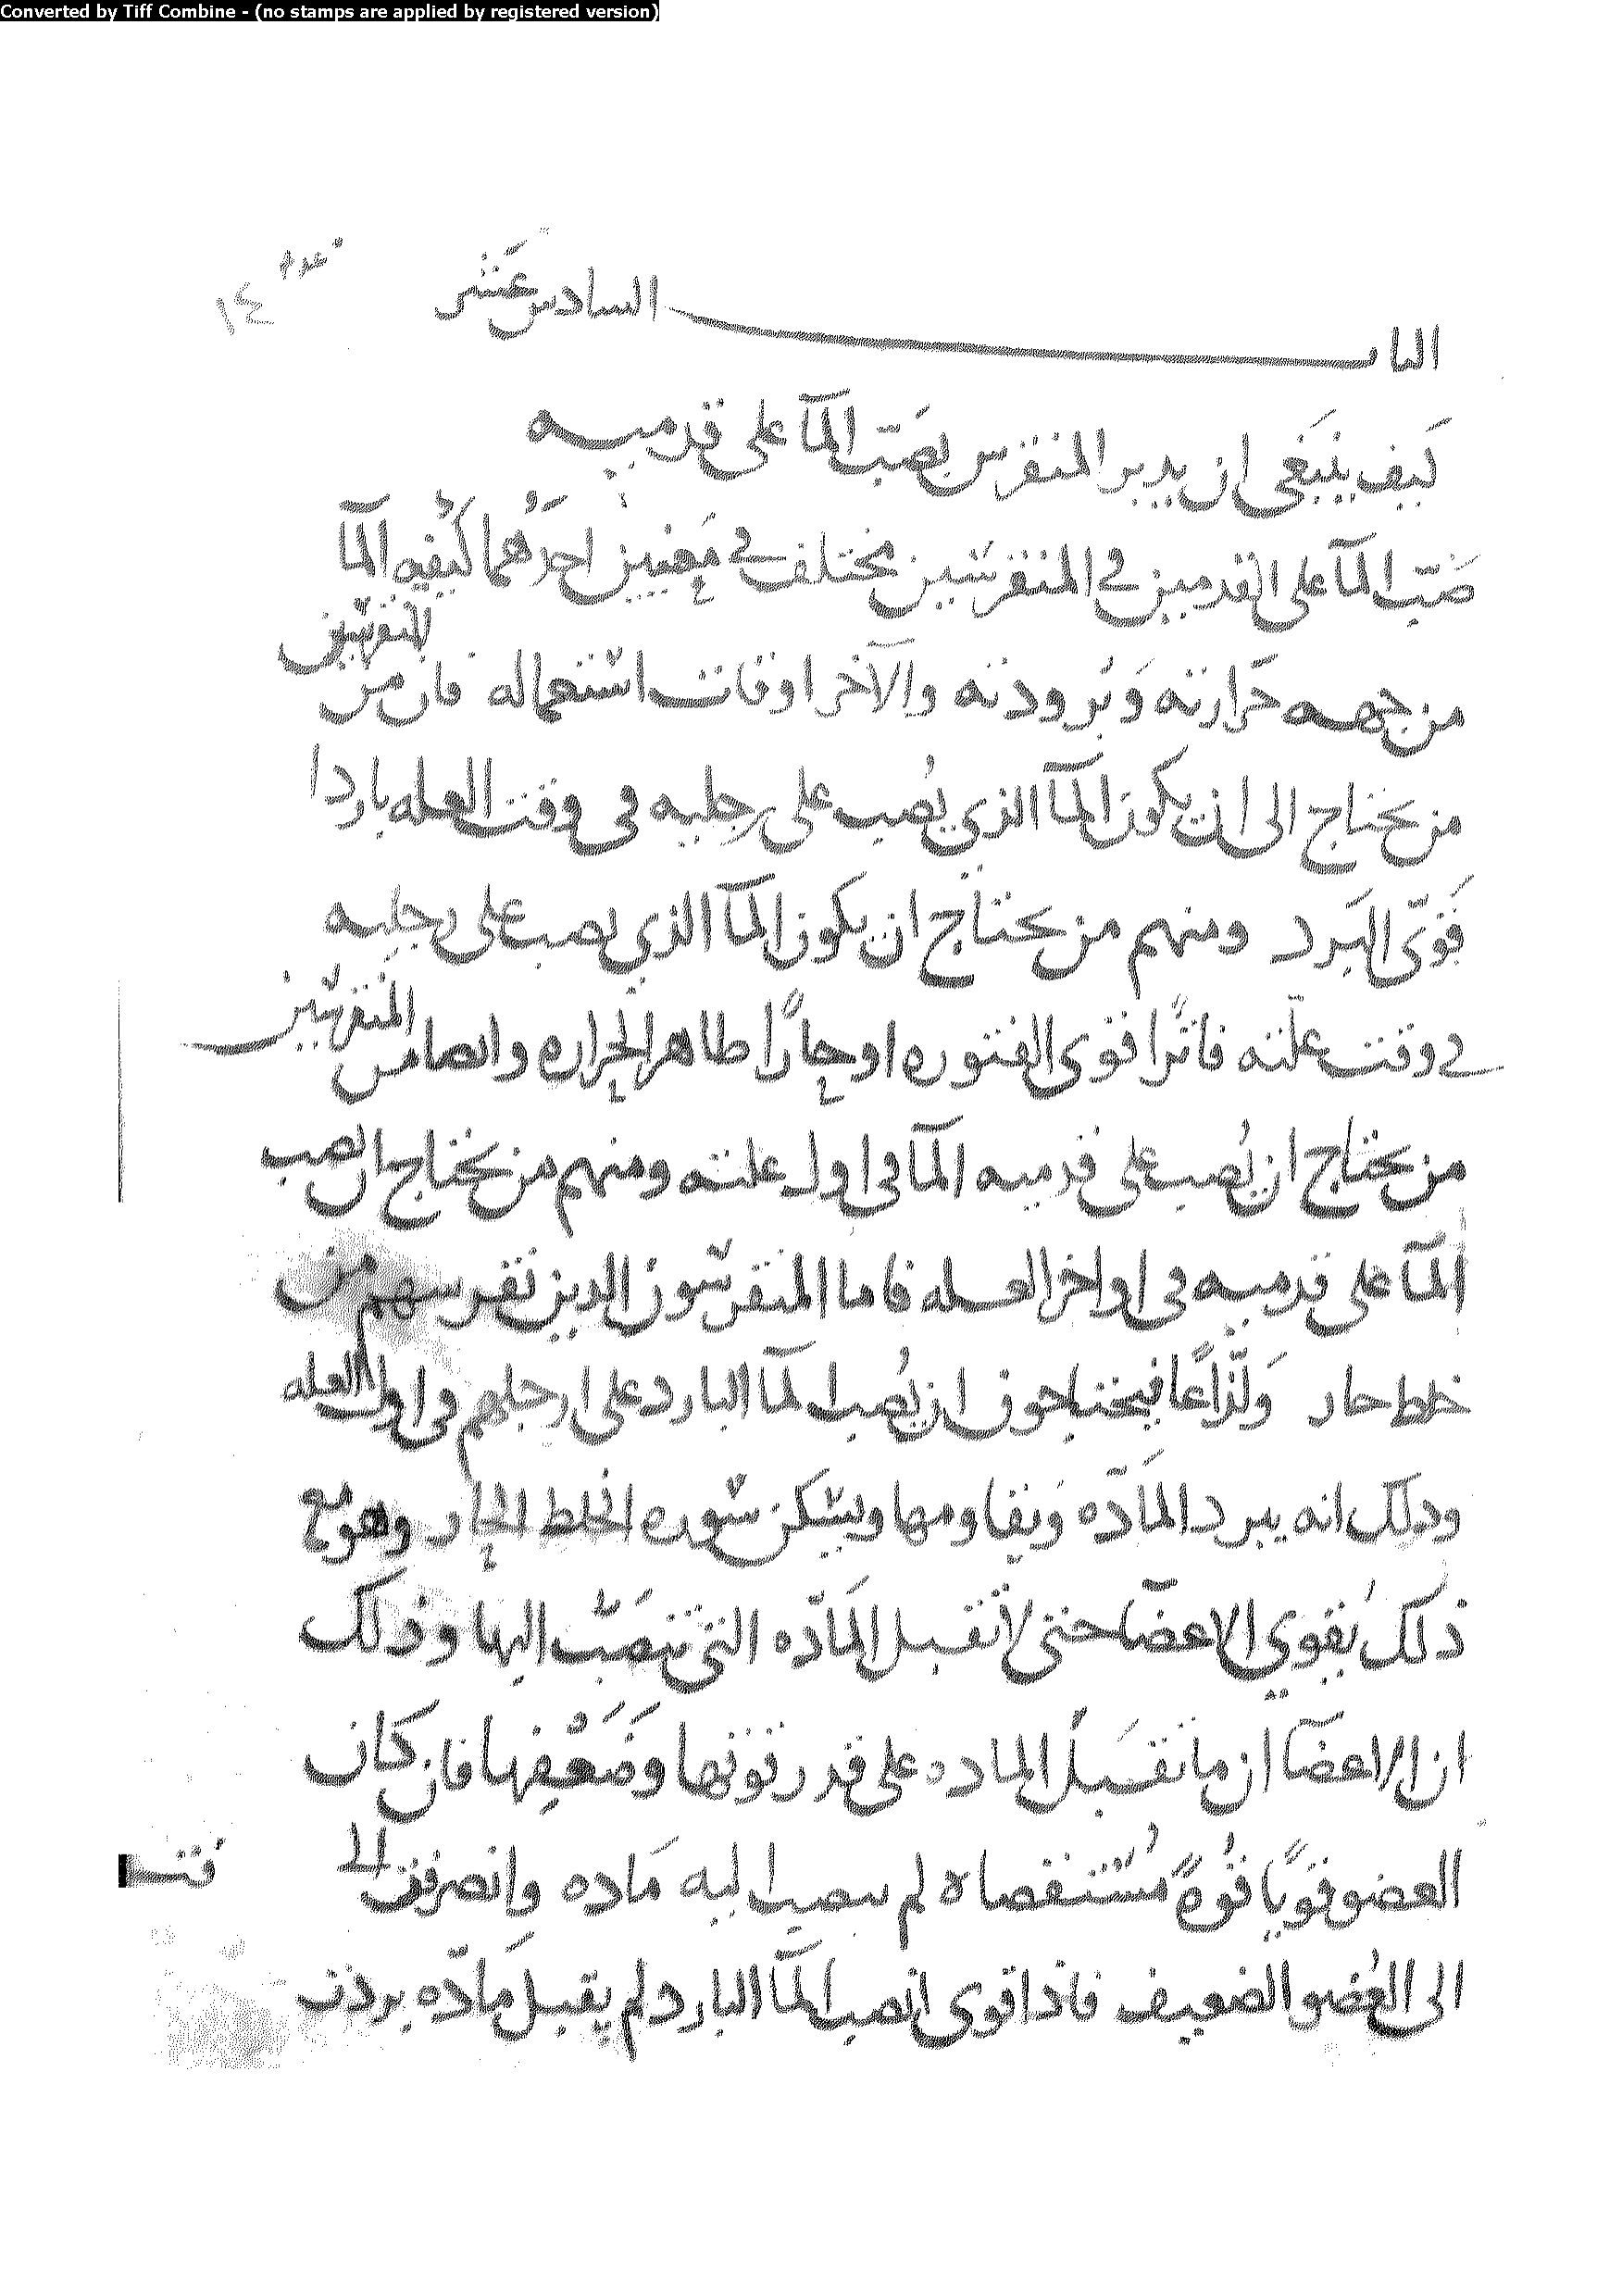 Converted by Tiff Combine - (no stamps are applied by registered version)
١٤
الباب السادس عشر
كيف ينبغي ان يدبر المنقرس بصَبّ المآ على قدميه
صَبّ المآ على القدمين في المنقرسين مختلف في معنيين احدهما كيفيه المآ
من جهه حَرارته وَبُرودته والآخر اوقات استعماله فان من المنقرسين
من يحتاج الى ان يكون المآ الذي يُصب على رجليه في وقت العله باردا
قَوّى البَرد ومنهم من يحتاج ان يكون المآ الذي يصب على رجليه
في وقت علّته فاترًا قوى الفتوره او حارًا طاهر الحراره وايضا من المنقرسين
من يحتاج ان يُصب على قدميه المآ في اول علته ومنهم من يحتاج ان يصب
المآ على قدميه في اواخر العله فاما المنقرسون الدين نقرسهم من
خلط حار وَلذّاعًا فيحتاجون ان يُصب المآ البارد على ارجلهم في اول العله
ودلك انه يبرد المادّه وَيقاومها ويسكن سوره الخلط الحار وهو مع
ذلك يُقوي الاعضآ حتى لا تقبل المَادّه التي تنصَبّ اليها وذلك
ان الاعضآ انما تقبَلُ الماده على قدر قوتها وضَعْفِها فان كان
العضو قويًا قُوهً مُستقصاه لم يصب اليه مَاده وانصرفت
الى العُضو الضعيف فاذا قوى بصب المآ البارد لم يقبل مَادّه بردت